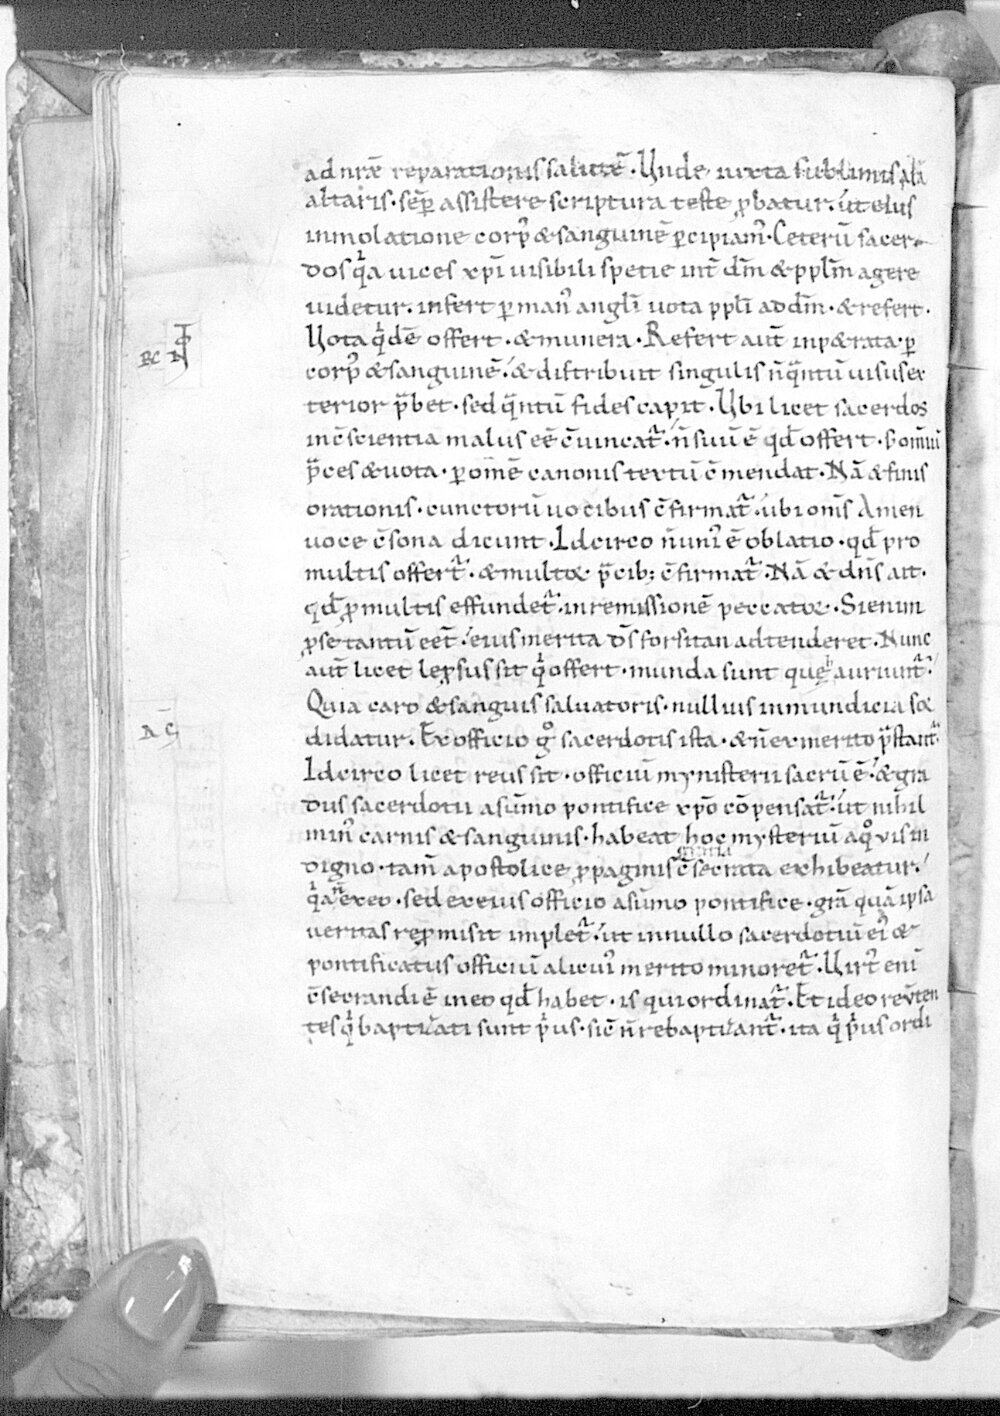 ad nr̄ae reparationis salutē. Unde iuxta sublimis
altaris. sēp assistere scriptura teste ꝓbatur. ut eius
inmolatione corpꝰ & sanguinē ꝑcipiamꝰ. Ceterū sacer-
dos qͥa uices xp̄i uisibili spetie int̄ dm̄ & ppl̄m agere
uidetur. infert ꝑ manꝰ angl̄i uota ppl̄i ad dm̄. & refert.
Uota qͥdē offert. & munera. Refert aut̄ inp&rata. ꝑ
corpꝰ & sanguinē. & distribuit singulis n̄ qᷓntū uisus ex
terior p̄bet. sed qᷓntū fides capit. Ubi licet sacerdos
in c̄scientia malus eē c̄uincat᷑. n̄ suū ē qd̄ offert. s; om̄iū
p̄ces & uota. ꝑ omē canonis textū c̄mendat. Nā & finis
orationis. cunctorū uocibus c̄firmat᷑. ubi om̄s Amen
uoce c̄sona dicunt. Idcirco n̄ unꝰ ē oblatio. qd̄ pro
multis offert᷑. & multoꝝ p̄cib; c̄firmat᷑. Nā & dn̄s ait.
qd̄ ꝓ multis effundet᷑ in remissionē peccatoꝝ. Si enim
ꝓ se tantū eēt. eius merita d̄s forsitan adtenderet. Nunc
aut̄ licet leprosus sit qͥ offert. munda sunt que hauriunt᷑.
Quia caro & sanguis saluatoris. nullius inmundicia sor
didatur. Ex officio gͦ sacerdotis ista. & n̄ ex merito p̄stant᷑.
Idcirco licet reus sit. officiū mynisterii sacrū ē. & gra
dus sacerdotii a sūmo pontifice xp̄o cōpensat᷑. ut nihil
minꝰ carnis & sanguinis. habeat hoc mysteriū a qͦuis in
digno. tam̄ apostolice ꝓpaginis c̄secrata exhibeatur.
gratia
qͥa n̄ ex eo. sed ex eius officio a sūmo pontifice. grā quā ipsa
ueritas repromisit implet᷑. ut in nullo sacerdotiū eiꝰ &
pontificatus officiū alicuiꝰ merito minoret᷑. Uirtꝰ enī
c̄secrandi ē in eo qd̄ habet. is qui ordinat᷑. Et ideo reūten
tes qͥ baptizati sunt pͥus. sic n̄ rebaptizant᷑. ita qͥ pͥus ordi